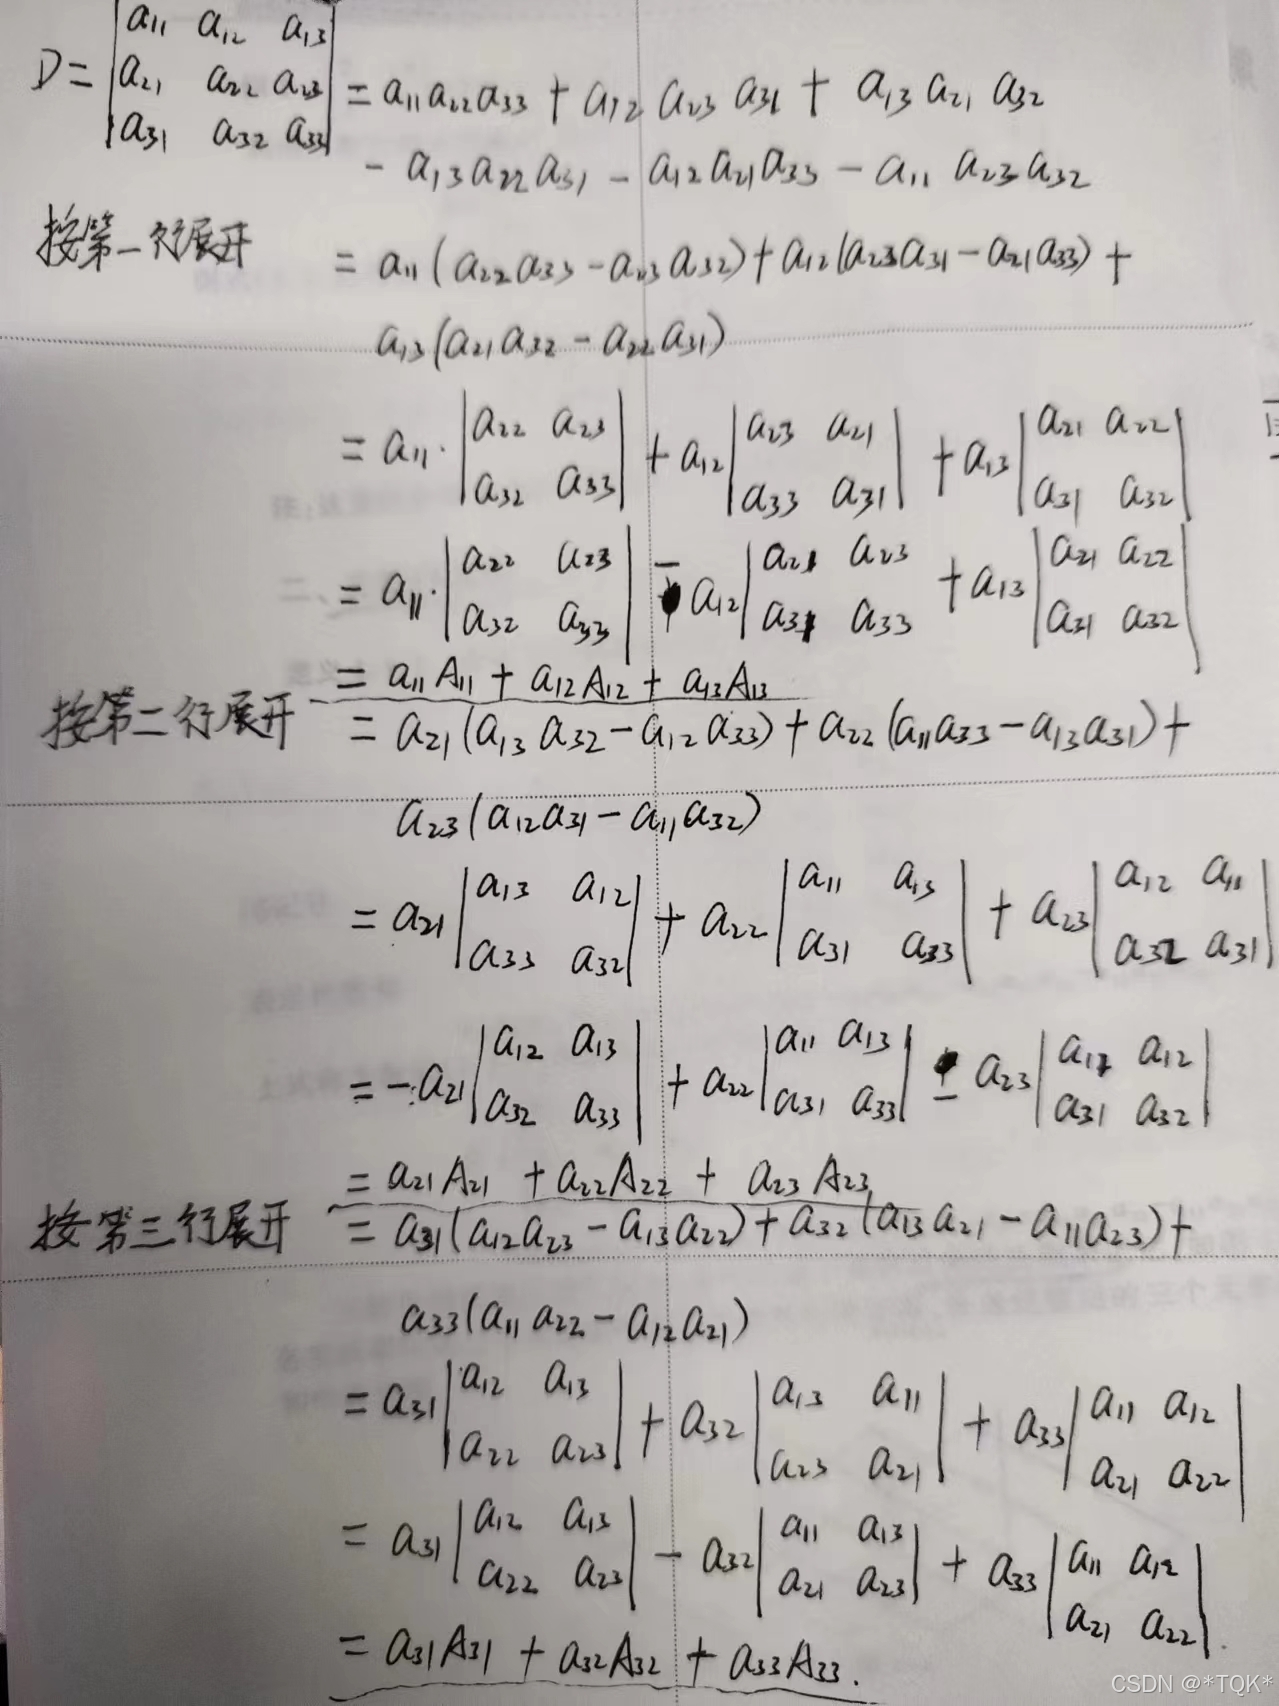 D = | a11 a12 a13 |
| a21 a22 a23 | = a11a22a33 + a12 a23 a31 + a13 a21 a32
| a31 a32 a33 |
- a13a22a31 - a12a21a33 - a11 a23a32
按第一行展开 = a11(a22a33 - a23a32) + a12(a23a31 - a21a33) +
a13(a21a32 - a22a31)
= a11· | a22 a23 | + a12 | a23 a21 | + a13 | a21 a22 |
| a32 a33 | | a33 a31 | | a31 a32 |
= a11· | a22 a23 | - a12 | a21 a23 | + a13 | a21 a22 |
| a32 a33 | | a31 a33 | | a31 a32 |
= a11A11 + a12A12 + a13A13
按第二行展开 = a21(a13a32 - a12a33) + a22(a11a33 - a13a31) +
a23(a12a31 - a11a32)
= a21 | a13 a12 | + a22 | a11 a13 | + a23 | a12 a11 |
| a33 a32 | | a31 a33 | | a32 a31 |
= -a21 | a12 a13 | + a22 | a11 a13 | - a23 | a11 a12 |
| a32 a33 | | a31 a33 | | a31 a32 |
= a21A21 + a22A22 + a23A23
按第三行展开 = a31(a12a23 - a13a22) + a32(a13a21 - a11a23) +
a33(a11a22 - a12a21)
= a31 | a12 a13 | + a32 | a13 a11 | + a33 | a11 a12 |
| a22 a23 | | a23 a21 | | a21 a22 |
= a31 | a12 a13 | - a32 | a11 a13 | + a33 | a11 a12 |
| a22 a23 | | a21 a23 | | a21 a22 |.
= a31A31 + a32A32 + a33A33.
CSDN @*TQK*